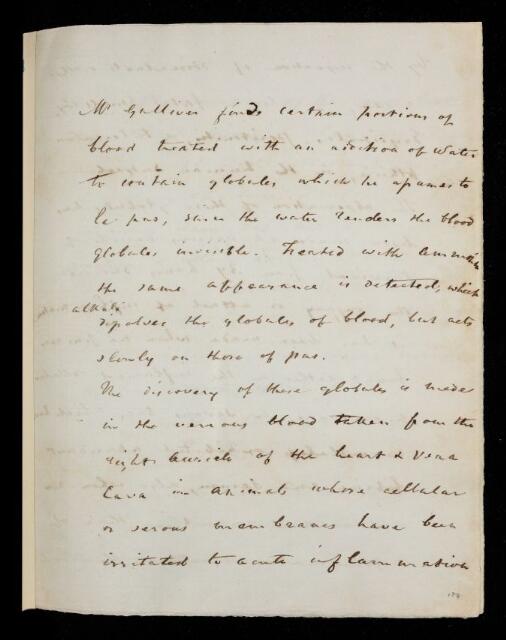 Mr Gulliver finds certain portions of
blood treated with an addition of water
to contain globules which he assumes to
be pus, since the water renders the blood
globules invisible. Treated with ammonia
the same appearance is detected, which
alkali
dissolves the globules of blood, but acts
slowly on those of pus.
The discovery of these globules is made
in the venous blood taken from the
right auricle of the heart & vena
cava in animals whose cellular
or serous membranes have been
irritated to acute inflammation